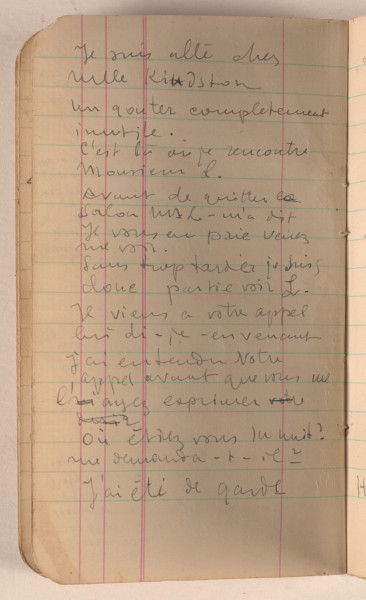 Je suis allé chez
Mlle Kindston
un gouter completement
inutile.
C'est là où je rencontre
Monsieur L.
Avant de quitter le
salon m'a dit
Je vous en prie venez
me voir.
Sans trop tarder je suis
donc partie voir L.
Je viens a votre appel
lui di-je-en venant
j'ai entendu Notre
appel avant que vous me
l'ayez exprimer
Où étiez vous la nuit?
me demanda-t-il
J'ai été de garde